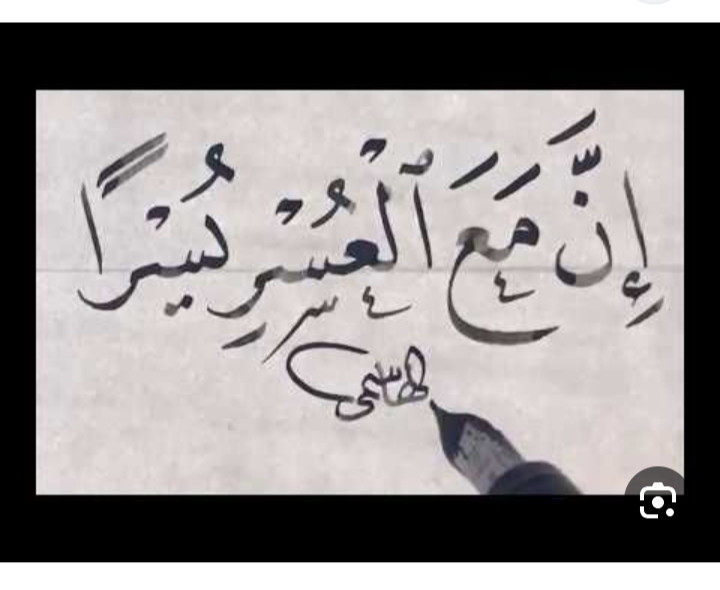 إِنَّ مَعَ ٱلْعُسْرِ يُسْرًا
الهاشمي